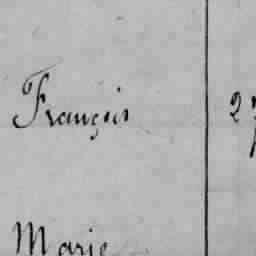 François 2
Marie